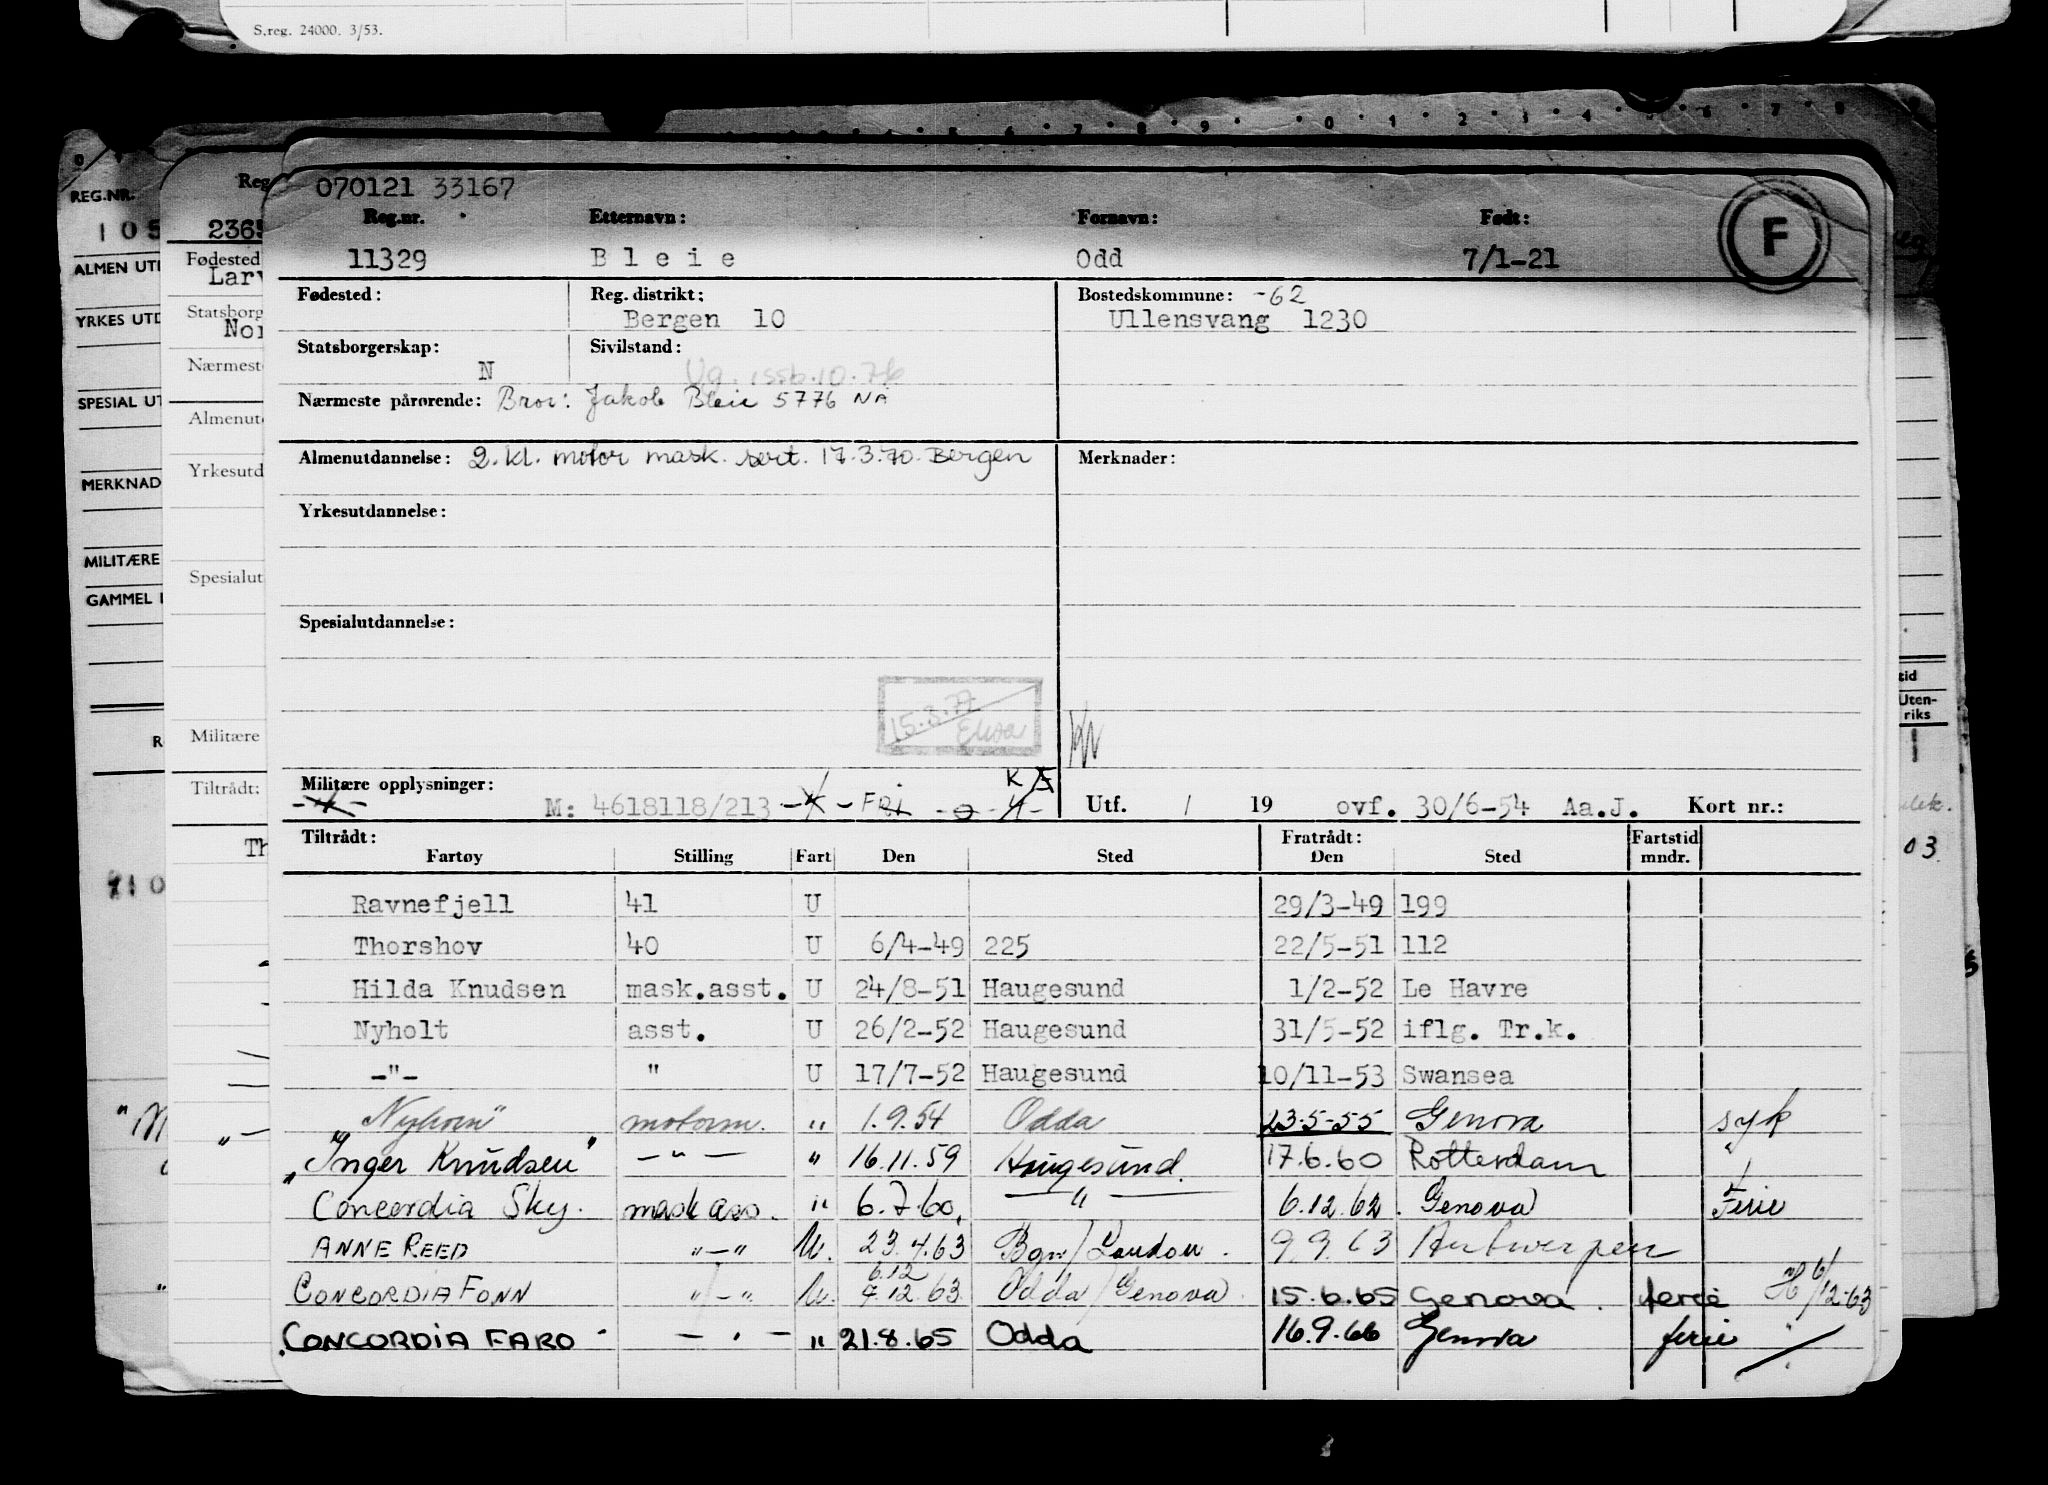 S.reg. 24000. 3/53.
070121 33167
Reg.nr. Etternavn: Fornavn: Født:
11329 Bleie Odd 7/1-21
F
Fødested: Reg. distrikt: Bostedskommune: -62
Bergen 10 Ullensvang 1230
Statsborgerskap: Sivilstand:
N
Nærmeste pårørende: Bror: Jakob Bleie 5776 NÅ
Almenutdannelse: 2. kl. motor mask. sert. 17.3.70. Bergen Merknader:
Yrkesutdannelse:
Spesialutdannelse:
15.3.77
Militære opplysninger:
M: 4618118/213 Utf. / 19 ovf. 30/6-54 Aa.J. Kort nr.:
Tiltrådt: Fratrådt: Fartstid
Fartøy Stilling Fart Den Sted Den Sted mndr.
Ravnefjell 41 U 29/3-49 199
Thorshov 40 U 6/4-49 225 22/5-51 112
Hilda Knudsen mask.asst. U 24/8-51 Haugesund 1/2-52 Le Havre
Nyholt asst. U 26/2-52 Haugesund 31/5-52 iflg. Tr.k.
-"- " U 17/7-52 Haugesund 10/11-53 Swansea
"Nyhorn" motorm. " 1.9.54 Odda 23.5-55 Genova syk
"Inger Knudsen" -"- " 16.11.59 Haugesund. 17.6.60 Rotterdam "
Concordia Sky. mask ass. " 6.7.60. -"- 6.12.62. Genova Ferie
ANNE REED "-" U. 23.4.63 Bgn/London. 9.9.63 Antwerpen
CONCORDIA FONN "-" U. 7.12.63 Odda/Genova. 15.6.65 Genova. ferie H 6/12-63
CONCORDIA FARO - " - " 21.8.65 Odda 16.9.66 Genova ferie
REG.NR.
105
ALMEN UT
YRKES UTD
SPESIAL UT
MERKNAD
MILITÆRE
GAMMEL
Reg
2365
Fødested
Larv
Statsborg
Nor
Nærmest
Almenut
Yrkesutd
Spesialut
Militære
Tiltrådt:
Th
tid
Uten-
riks
03